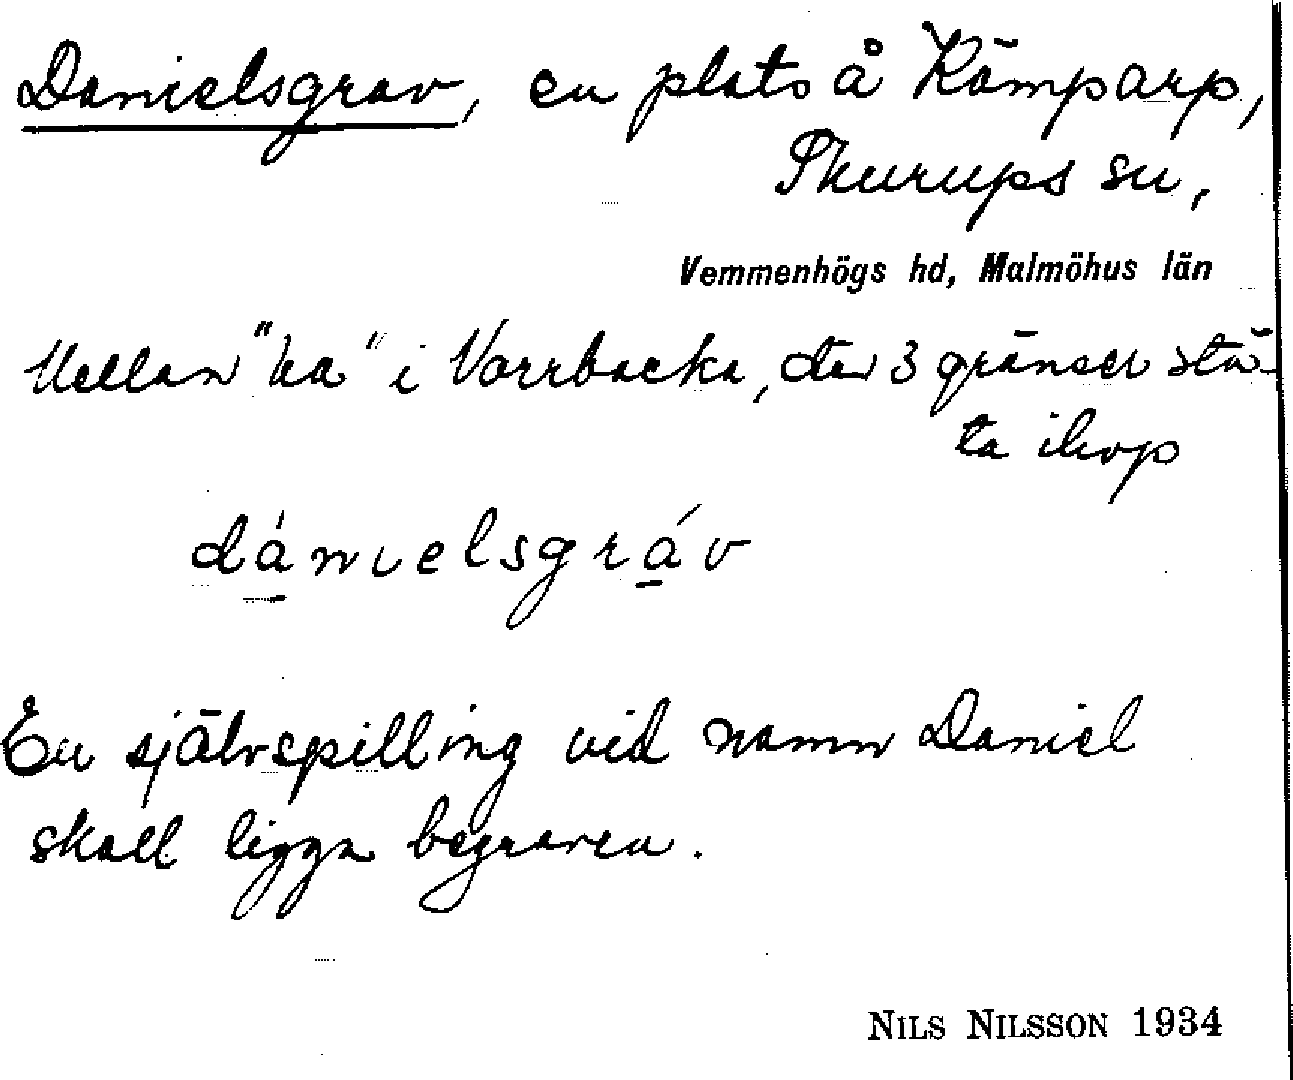 Danielsgrav, en plats å Kämparp,
Skurups sn,
Vemmenhögs hd, Malmöhus län
Mellan "ha" i Varrbacka, där 3 gränser stö-
ta ihop
dánielsgráv
En självspilling vid namn Daniel
skall ligga begraven.
NILS NILSSON 1934